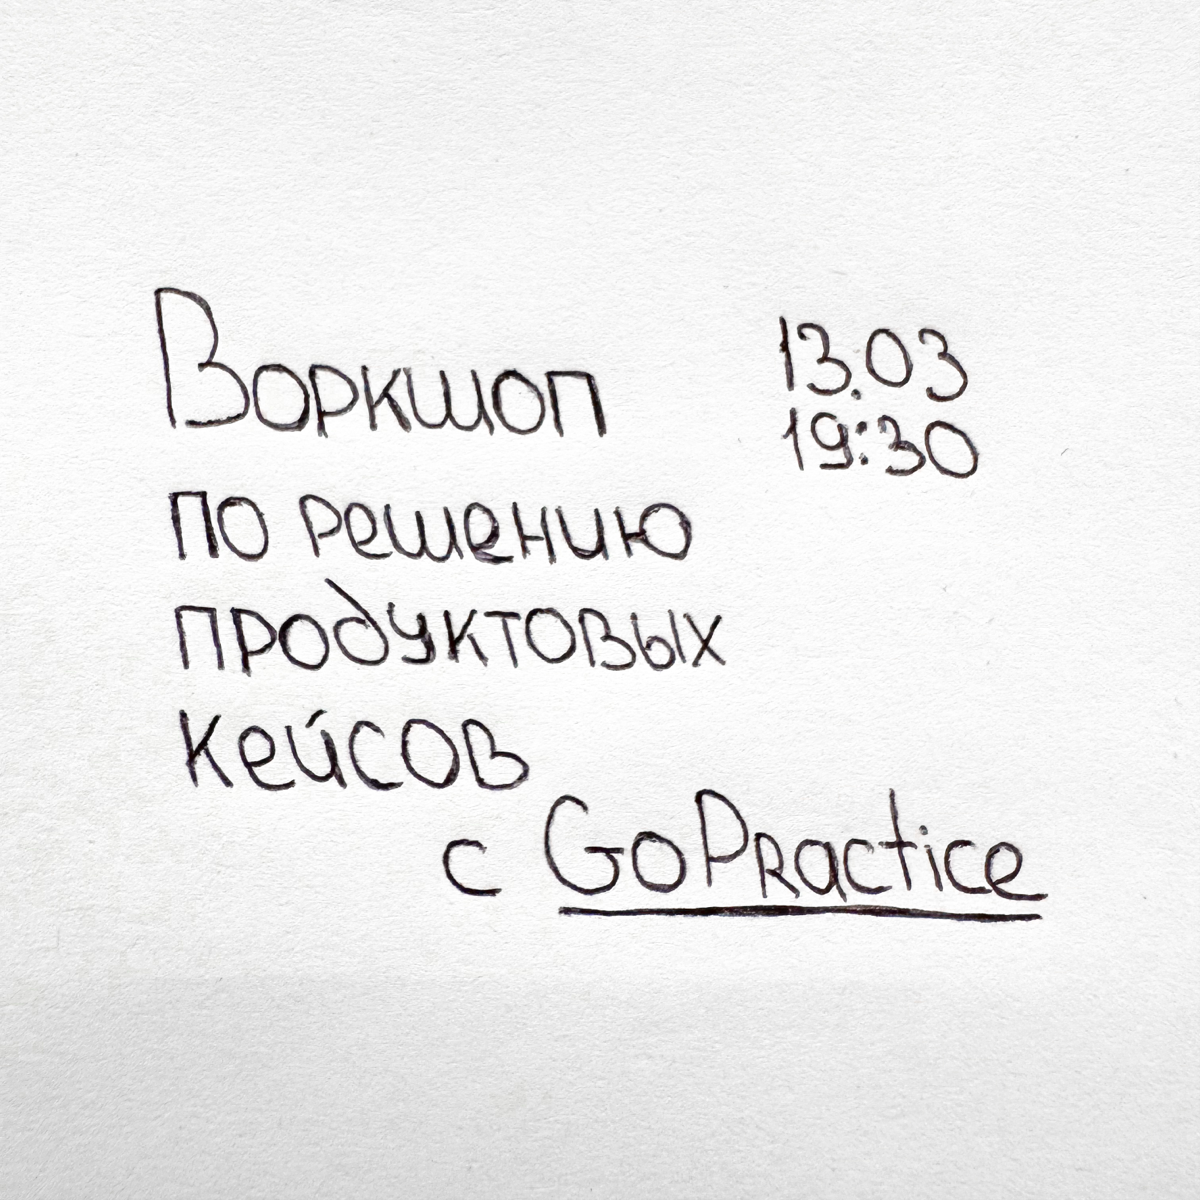 Воркшоп
13.03
19:30
по решению
продуктовых
кейсов
с GoPractice